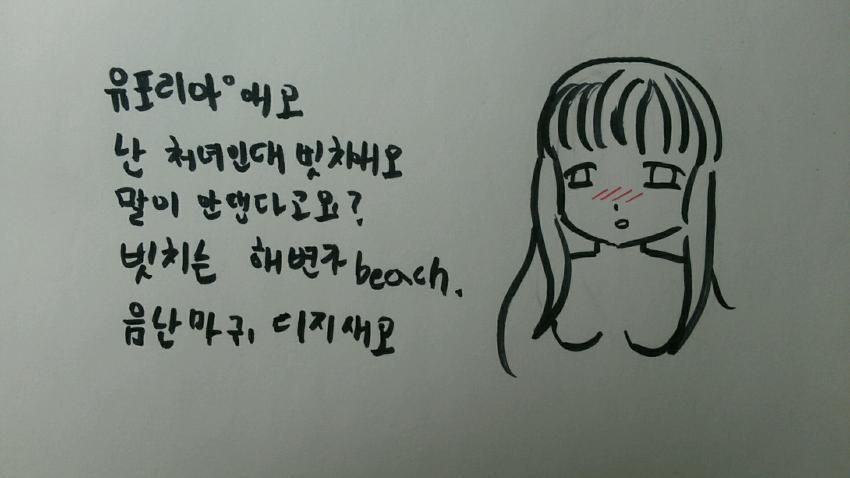 유포리아°에오
난 처녀인대 빗치에오
말이 안댄다고요?
빗치는 해변가 beach.
음난마귀, 디지새오